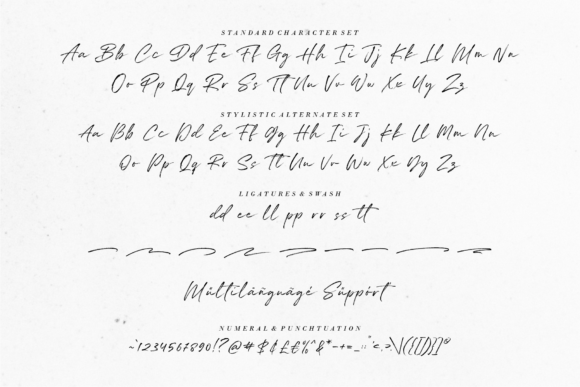 STANDARD CHARACTER SET
Aa Bb Cc Dd Ee Ff Gg Hh Ii Jj Kk Ll Mm Nn
Oo Pp Qq Rr Ss Tt Uu Vv Ww Xx Yy Zz
STYLISTIC ALTERNATE SET
Aa Bb Cc Dd Ee Ff Gg Hh Ii Jj Kk Ll Mm Nn
Oo Pp Qq Rr Ss Tt Uu Vv Ww Xx Yy Zz
LIGATURES & SWASH
dd ee ll pp rr ss tt
NUMERAL & PUNCHTUATION
1234567890!?@#$¢£€%^&*-+=_